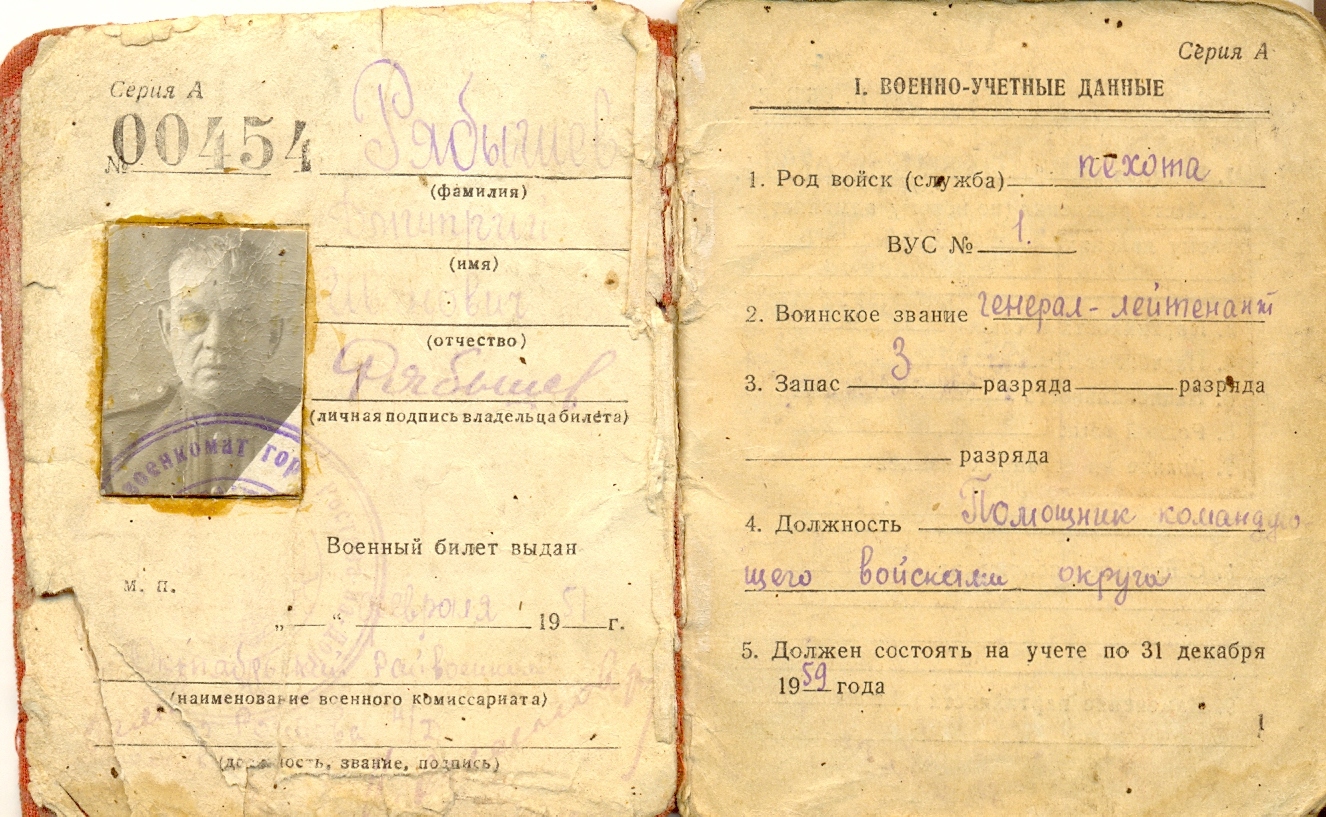 Серия А
№ 00454
Рябышев
(фамилия)
Дмитрий
(имя)
Иванович
(отчество)
Рябышев
(личная подпись владельца билета)
военкомат гор
Рост
Военный билет выдан
м. п.
„ “ февраля 1951 г.
Октябрьский Райвоенком
(наименование военного комиссариата)
(должность, звание, подпись)
Серия А
I. ВОЕННО-УЧЕТНЫЕ ДАННЫЕ
1. Род войск (служба) пехота
ВУС № 1.
2. Воинское звание генерал-лейтенант
3. Запас 3 разряда разряда
разряда
4. Должность Помощник командую
щего войсками округа
5. Должен состоять на учете по 31 декабря
1959 года
1